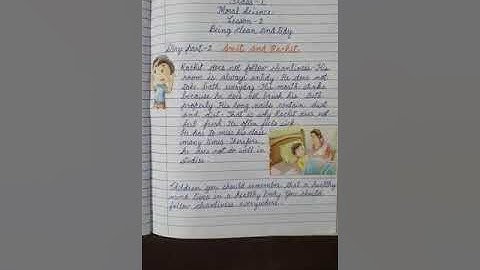 Class - 1
Moral Science
Lesson - 2
Being clean and tidy
Day Part-2 Smit and Rachit
Rachit does not follow cleanliness. His
room is always untidy. He does not
take bath everyday. His mouth stinks
because he does not brush his teeth
properly. His long nails contain dust
and dirt. That is why Rachit does not
feel fresh. He often falls sick.
He has to miss his class
many times. Therefore,
he does not do well in
studies.
Children, you should remember that a healthy
mind lives in a healthy body. You should
follow cleanliness everywhere.